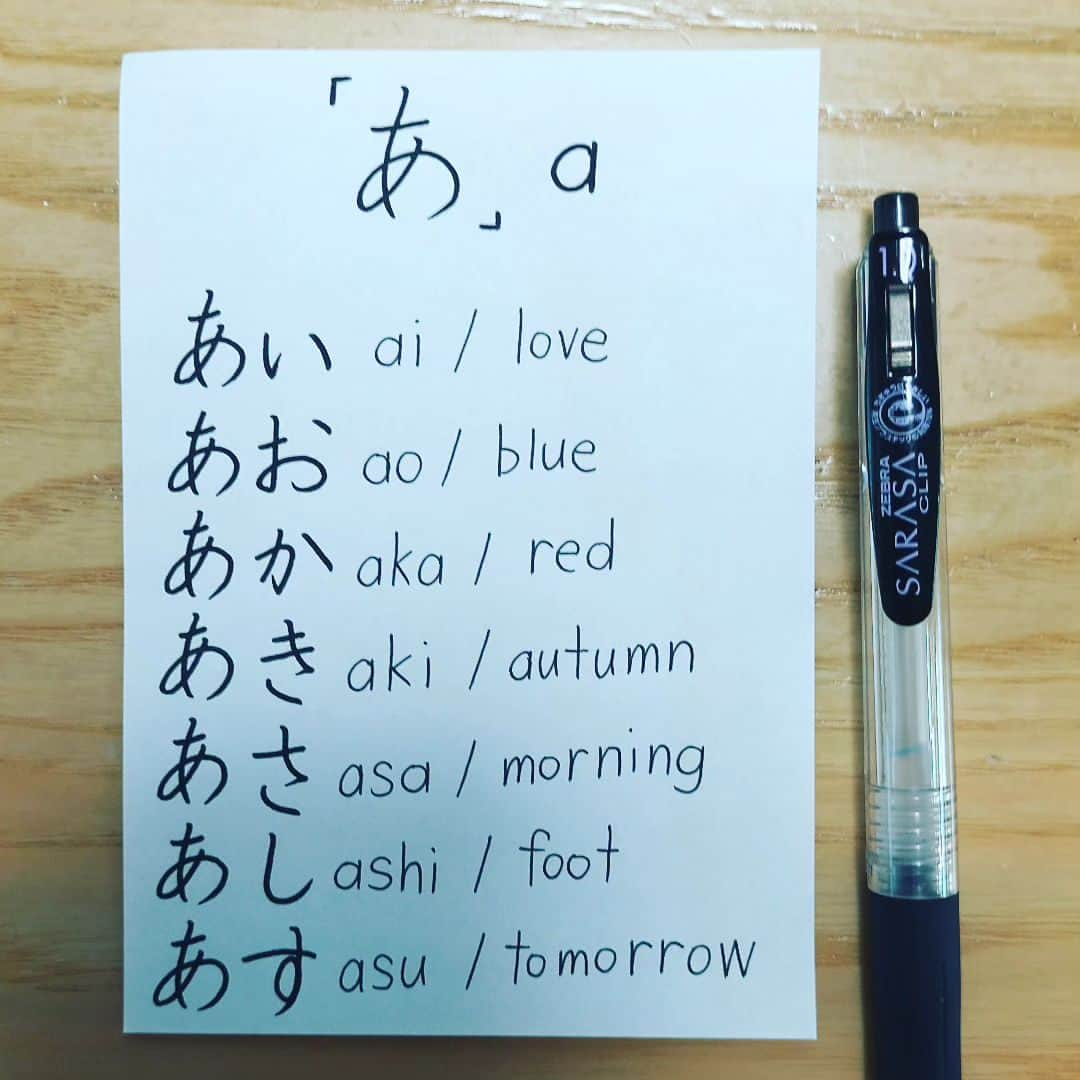 「あ」 a
あい ai / love
あお ao / blue
あか aka / red
あき aki / autumn
あさ asa / morning
あし ashi / foot
あす asu / tomorrow
ZEBRA
SARASA
CLIP